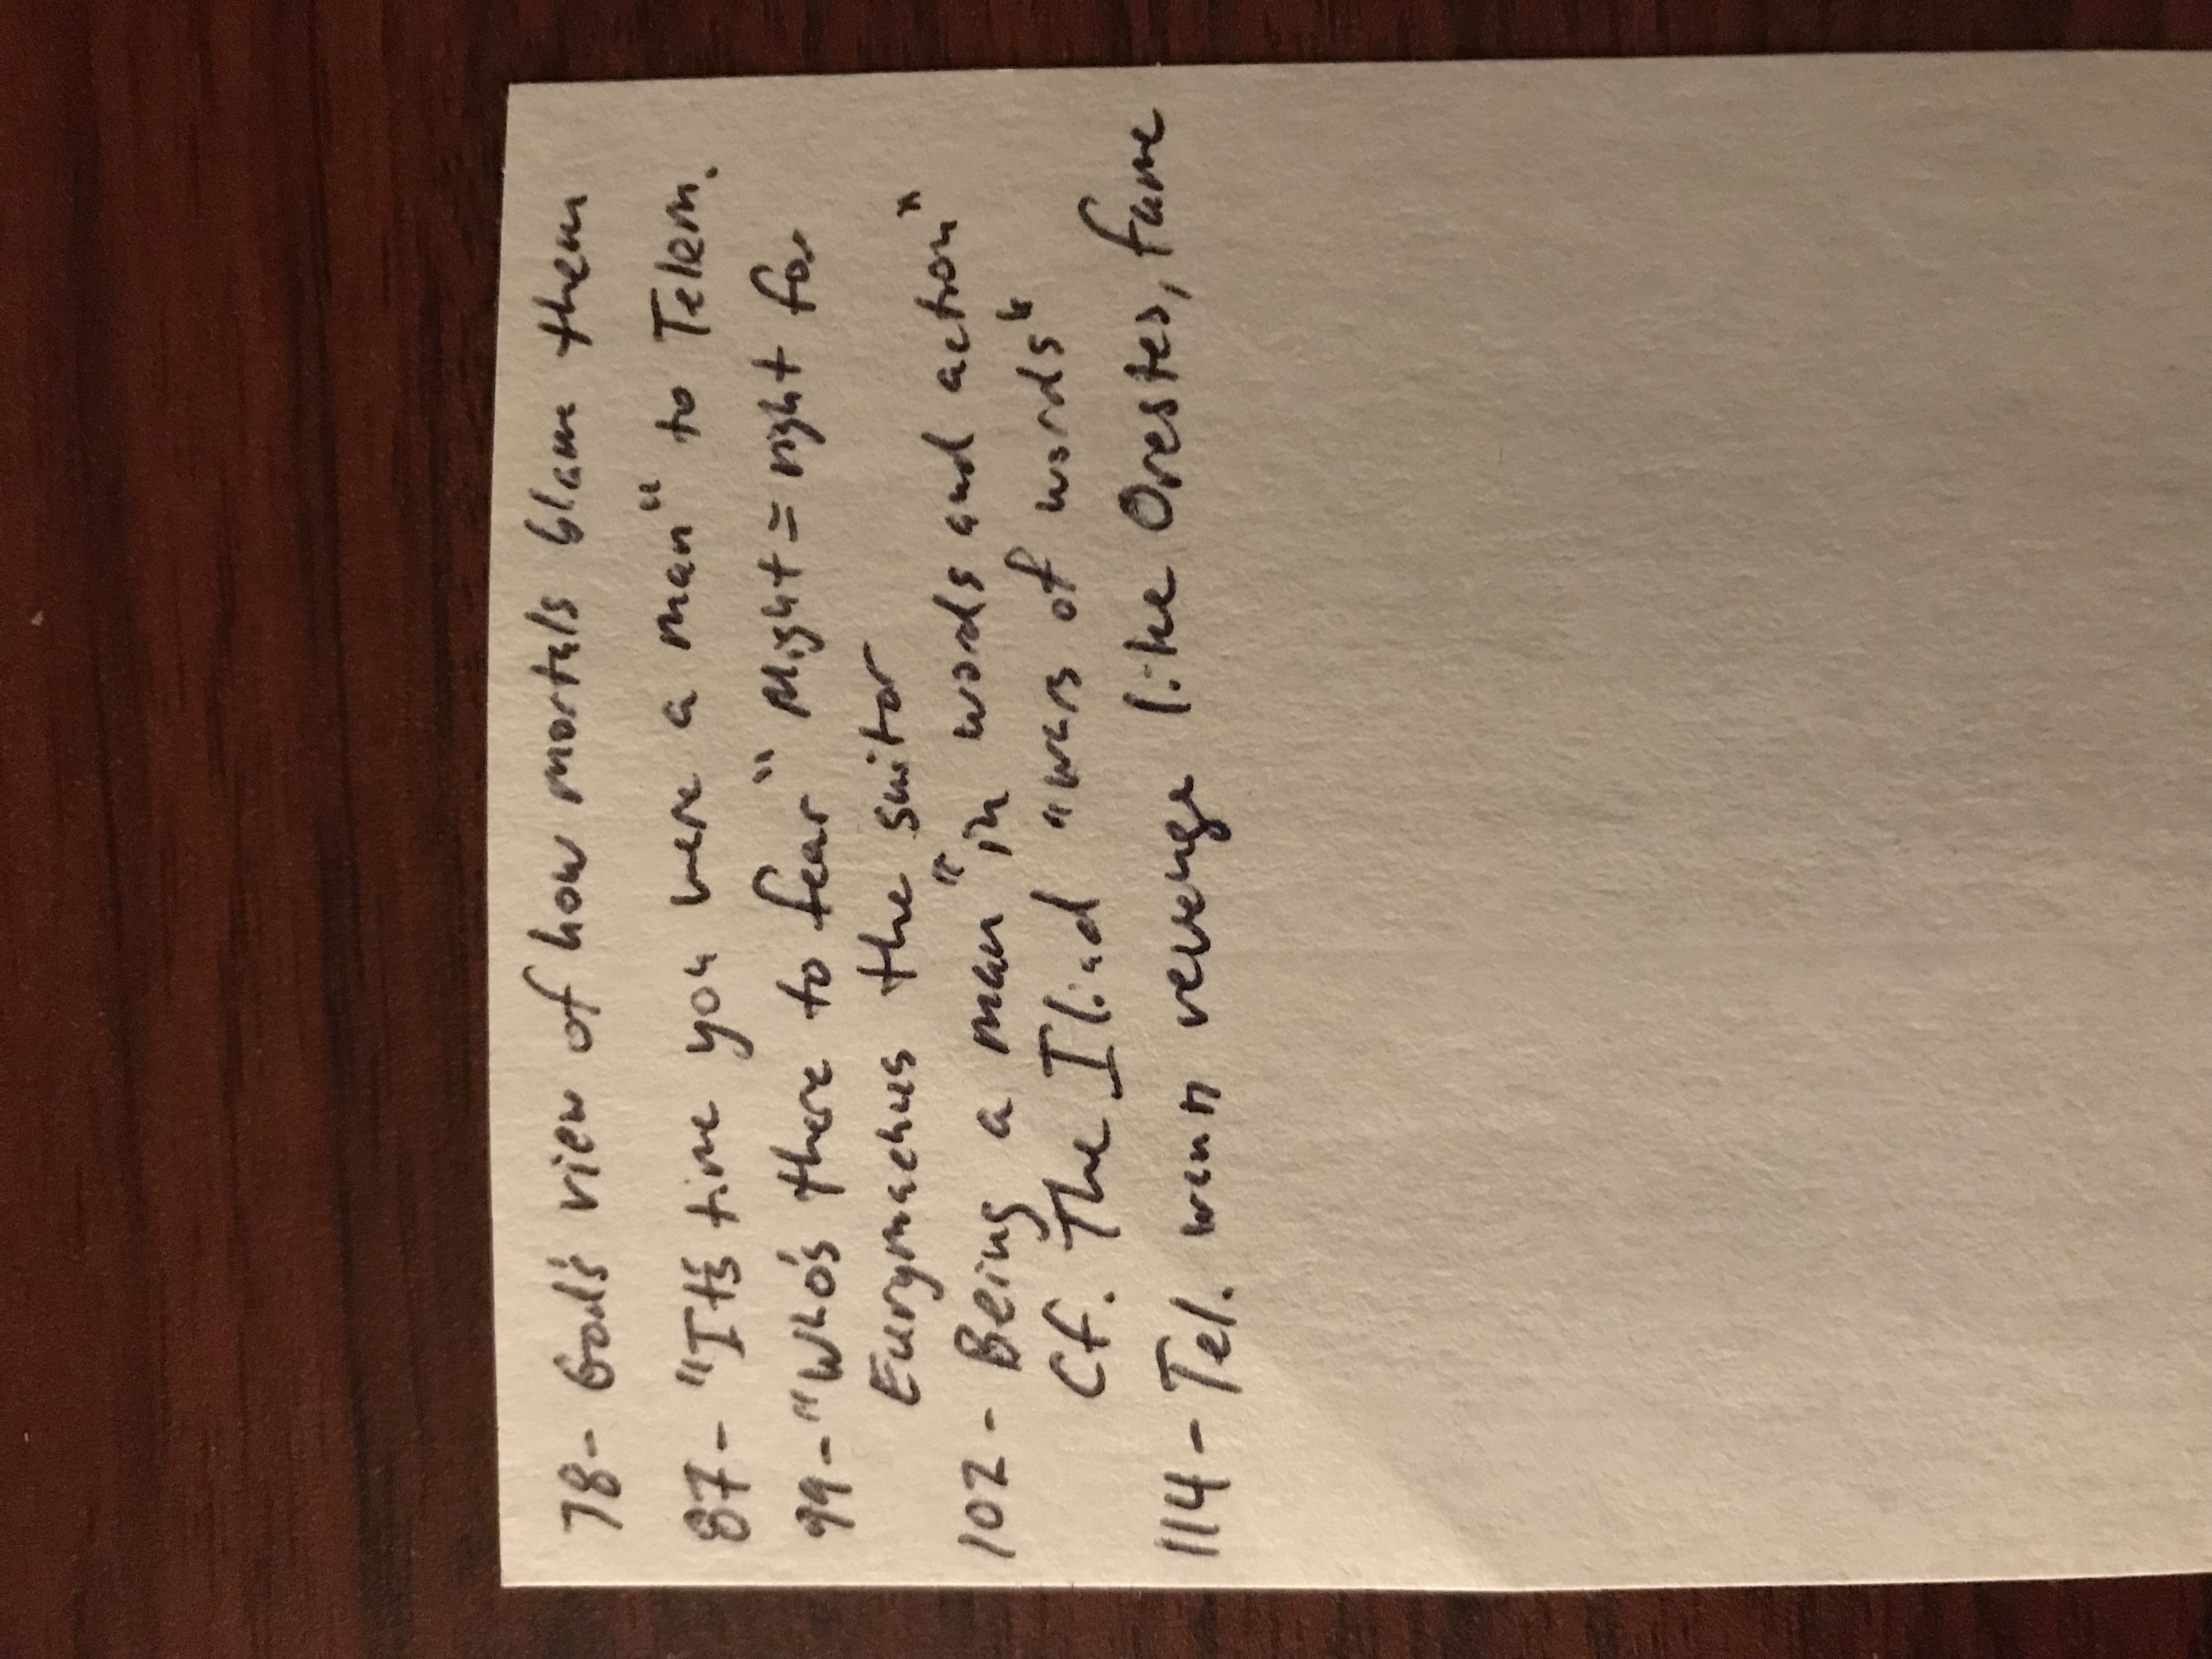 78- God's view of how mortals blame them
87- "It's time you were a man" to Telem.
99- "Who's there to fear" Might = right for
Eurymachus the suitor
102- Being a man "in words and action"
Cf. The Iliad "wars of words"
114- Tel. wants revenge like Orestes, fame